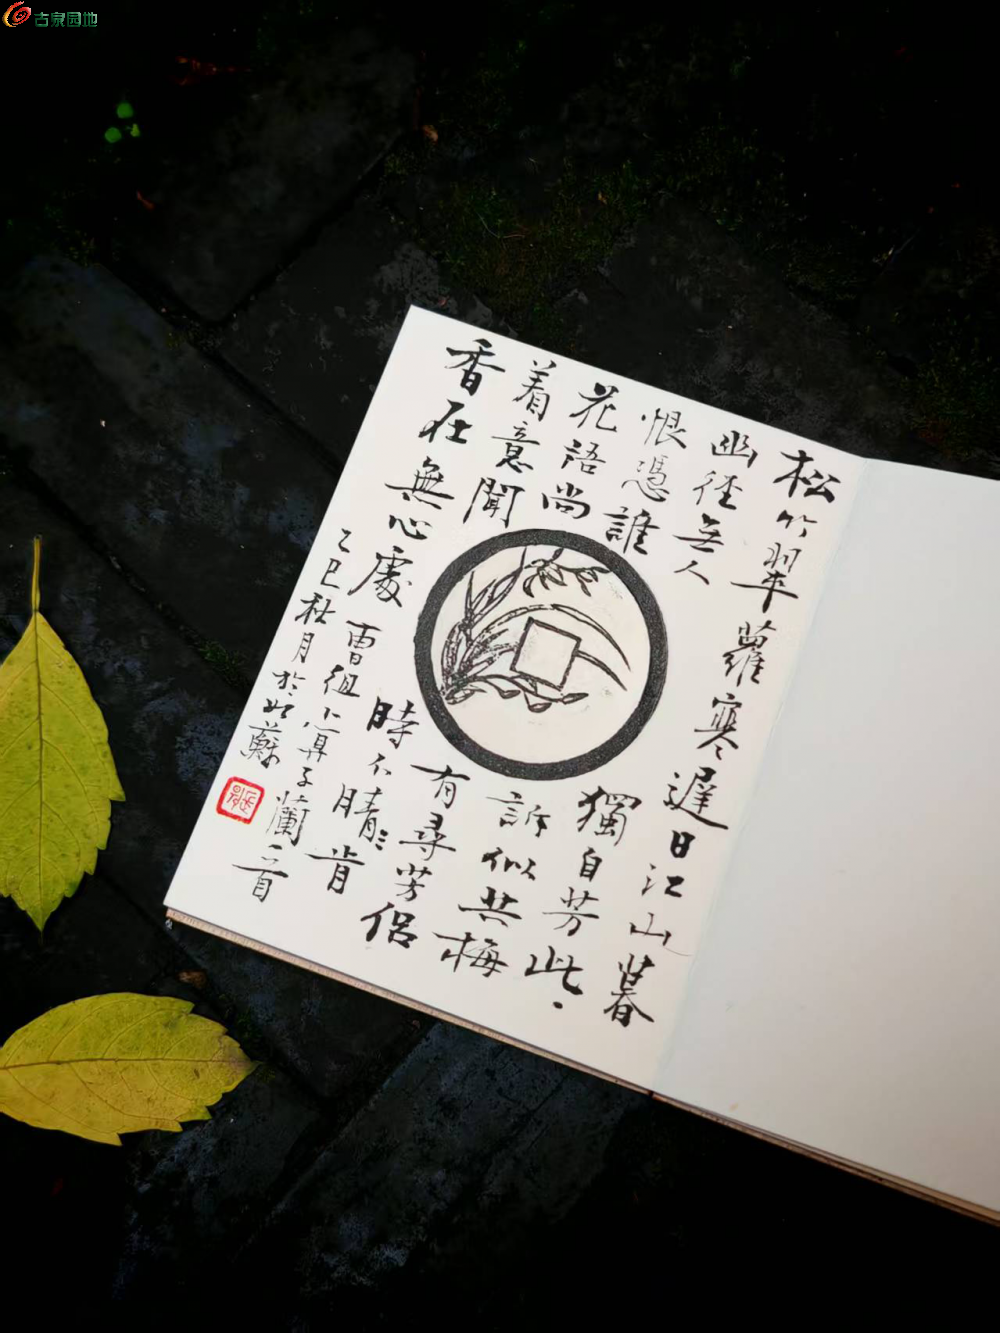 古泉园地
松竹翠蘿寒遲日江山暮
幽径无人獨自芳此
恨憑誰訴似共梅
花語尚有尋芳侣
着意聞時不晴肯
香在無心處曹組卜算子蘭一首
乙巳秋月於姑蘇